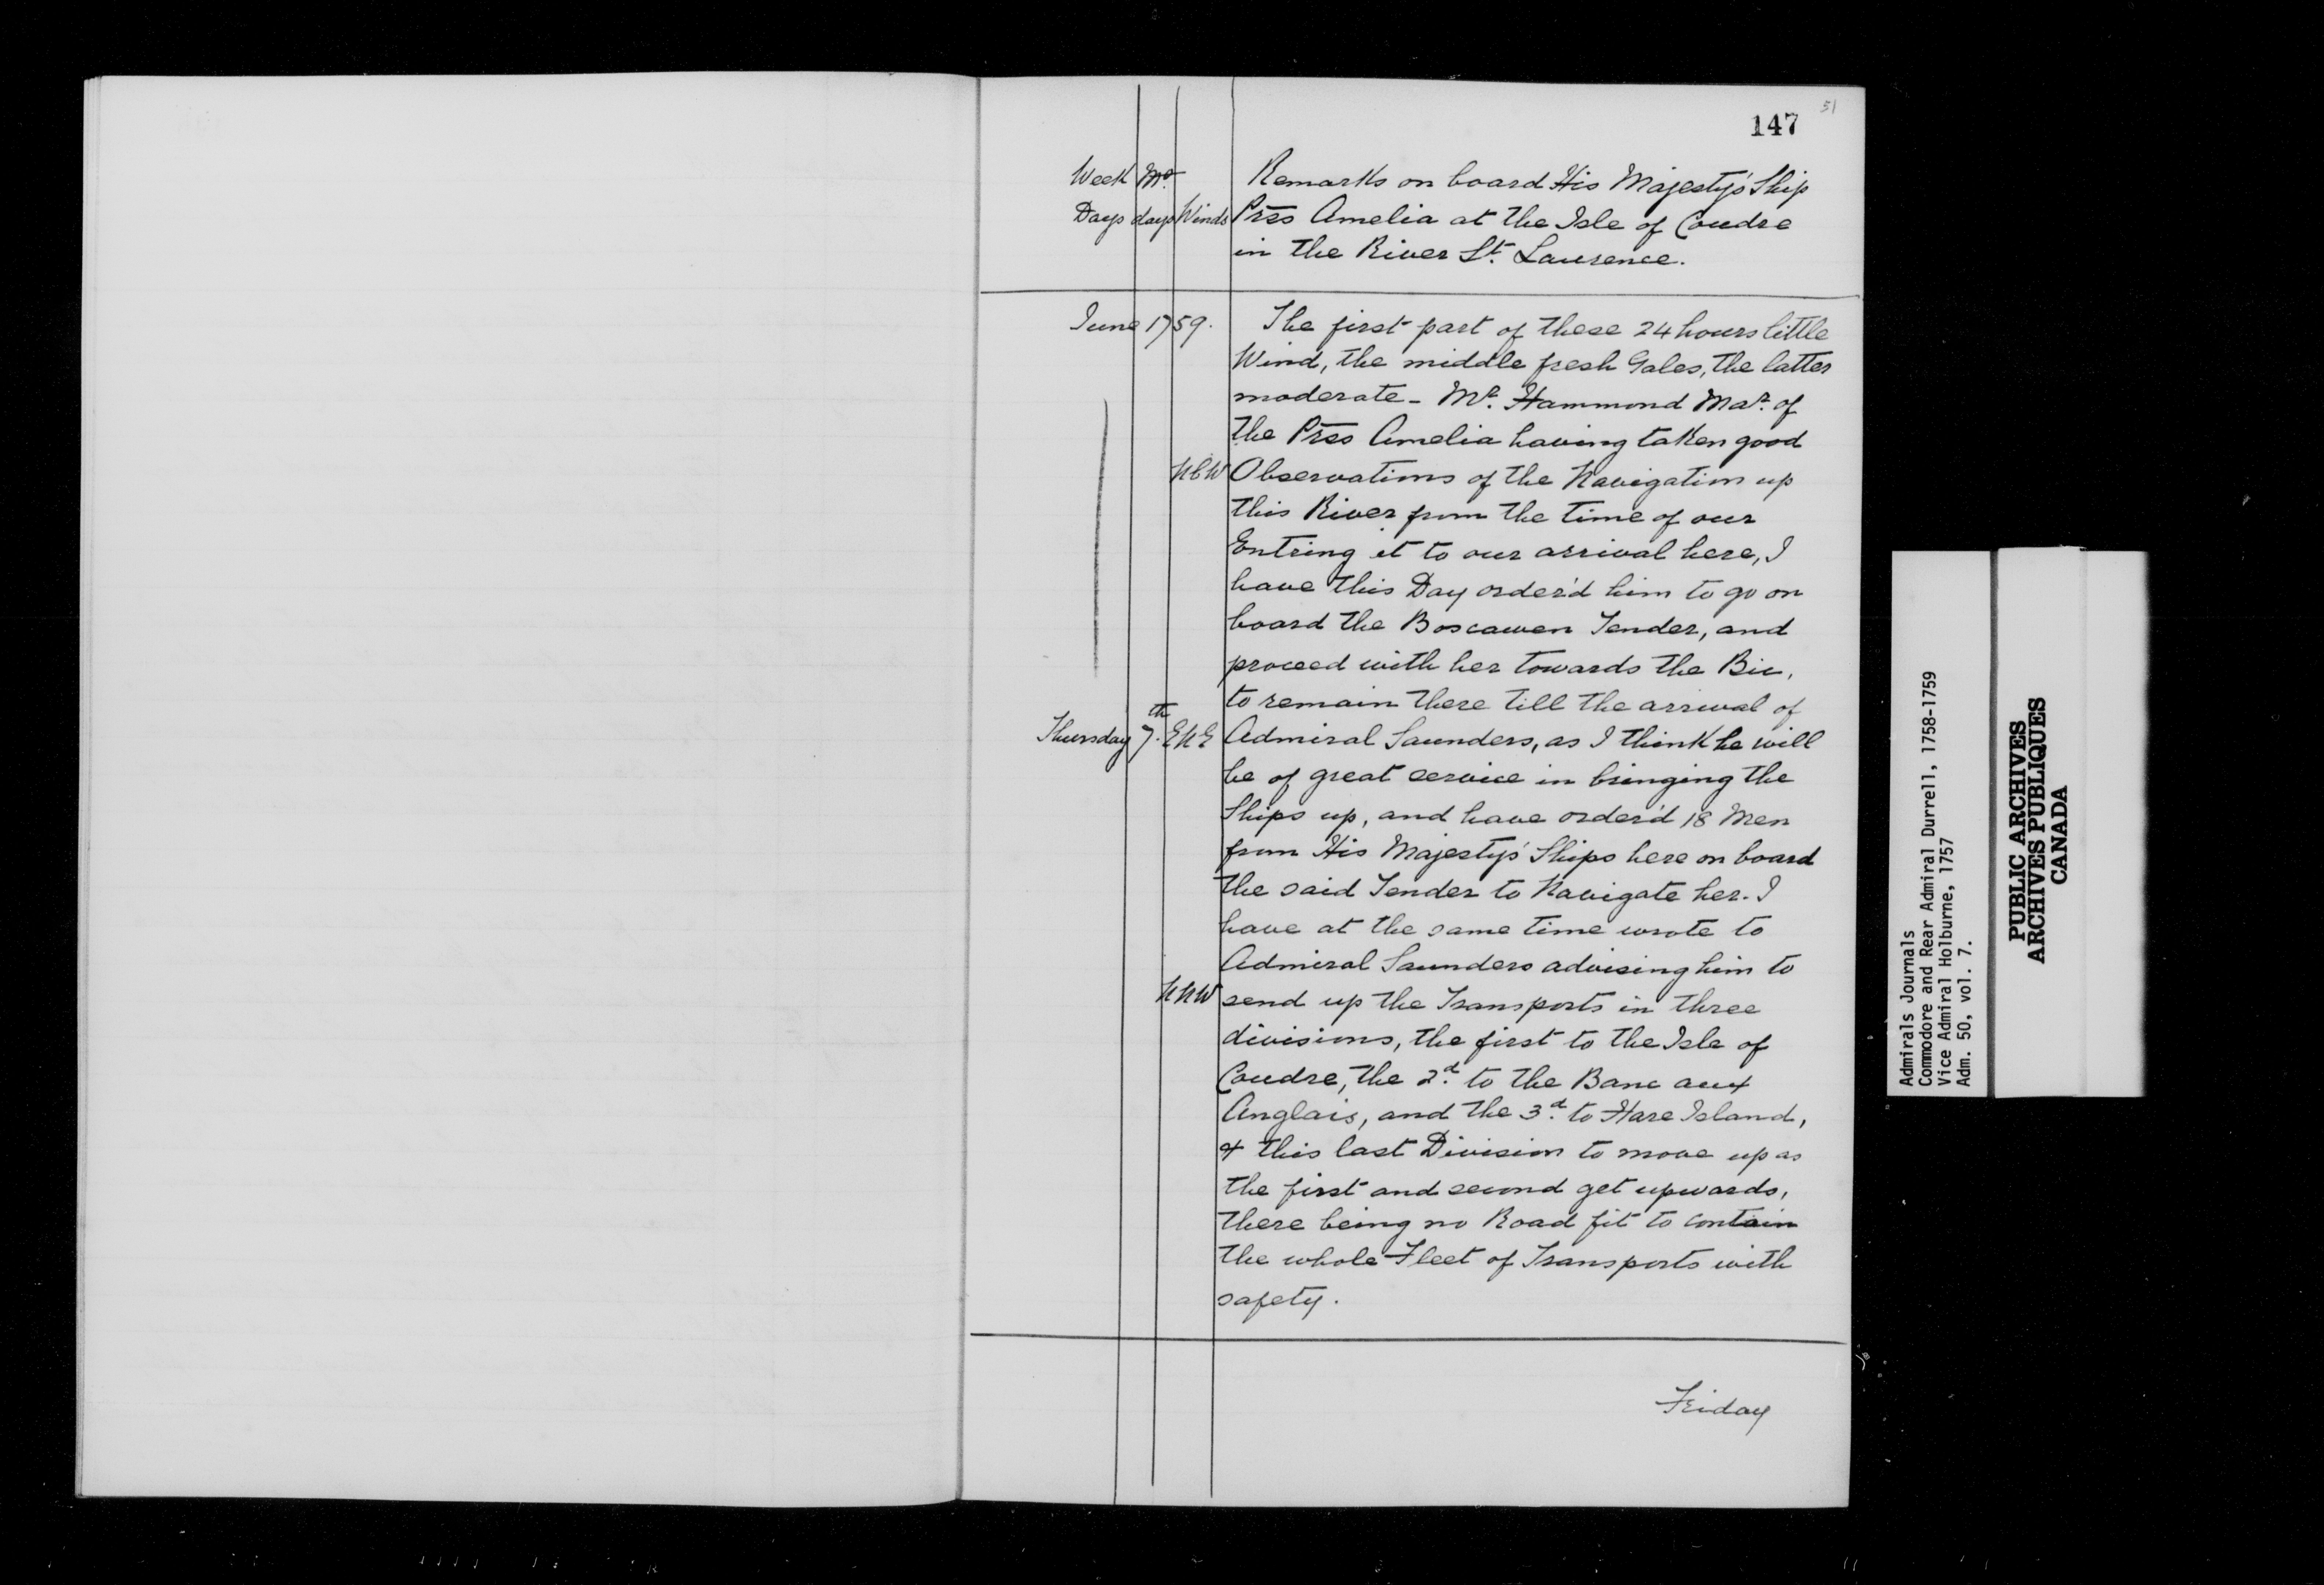 51
147
Week Mo. Remarks on board His Majesty's Ship
Days days Winds Prss Amelia at the Isle of Coudre
in the River St. Laurence.
June 1759. The first part of these 24 hours little
Wind, the middle fresh Gales, the latter
moderate - Mr. Hammond Mar. of
the Prss Amelia having taken good
NbW Observations of the Navigation up
this River from the time of our
Entring it to our arrival here, I
have this Day order'd him to go on
board the Boscawen Tender, and
proceed with her towards the Bic,
to remain there till the arrival of
Thursday 7th. ENE Admiral Saunders, as I think he will
be of great service in bringing the
Ships up, and have order'd 18 Men
from His Majesty's Ships here on board
the said Tender to Navigate her. I
have at the same time wrote to
Admiral Saunders advising him to
NNW send up the Transports in three
divisions, the first to the Isle of
Coudre, the 2d. to the Banc aux
Anglais, and the 3d. to Hare Island,
& this last Division to move up as
the first and second get upwards,
there being no Road fit to contain
the whole Fleet of Transports with
safety.
Friday
Admirals Journals
Commodore and Rear Admiral Durrell, 1758-1759
Vice Admiral Holburne, 1757
Adm. 50, vol. 7.
PUBLIC ARCHIVES
ARCHIVES PUBLIQUES
CANADA